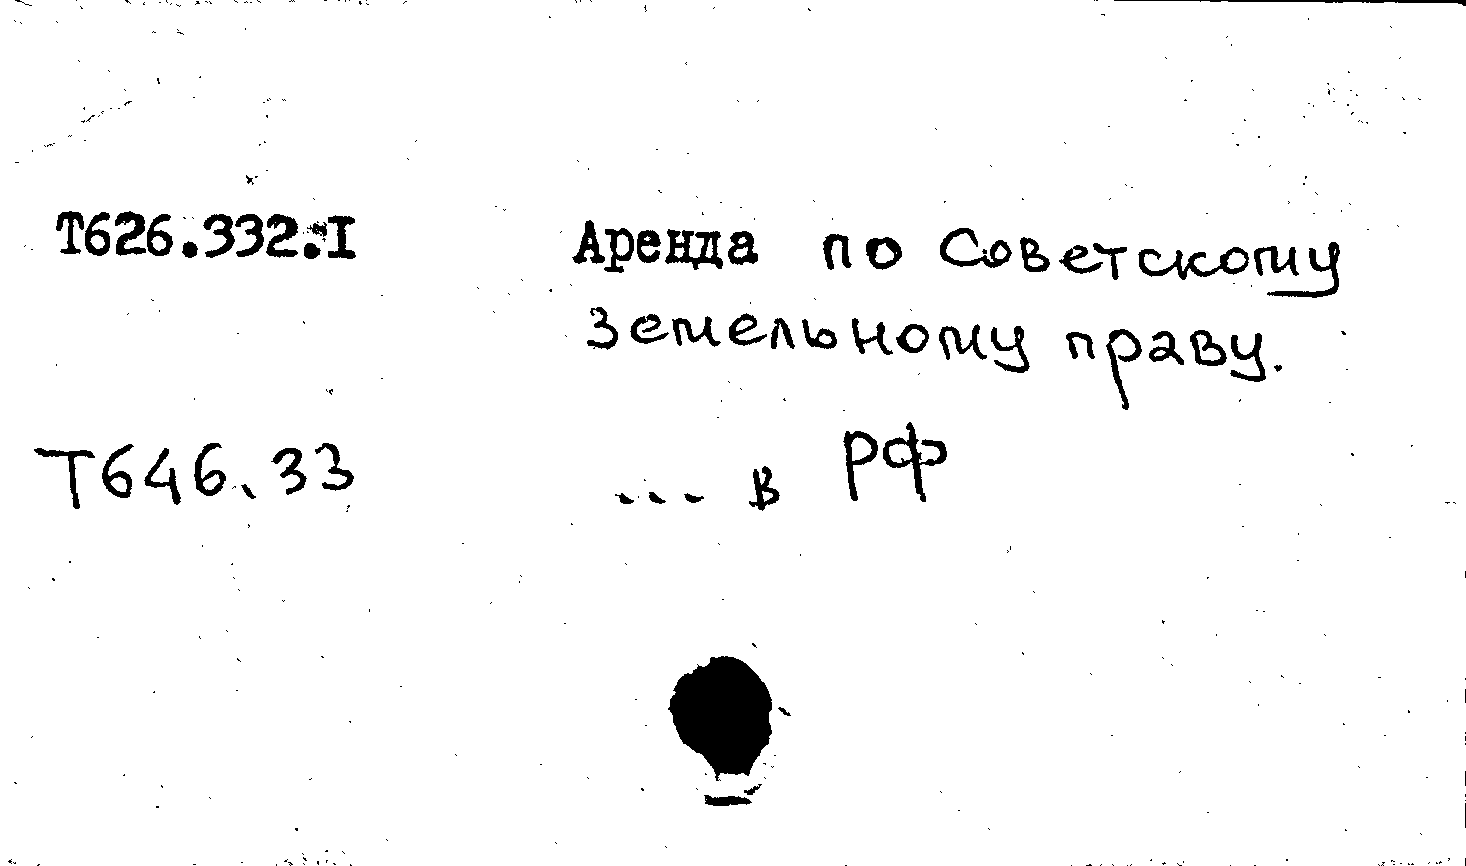 Т626.332.I Аренда по Советскому
земельному праву.
Т646.33 ... в РФ